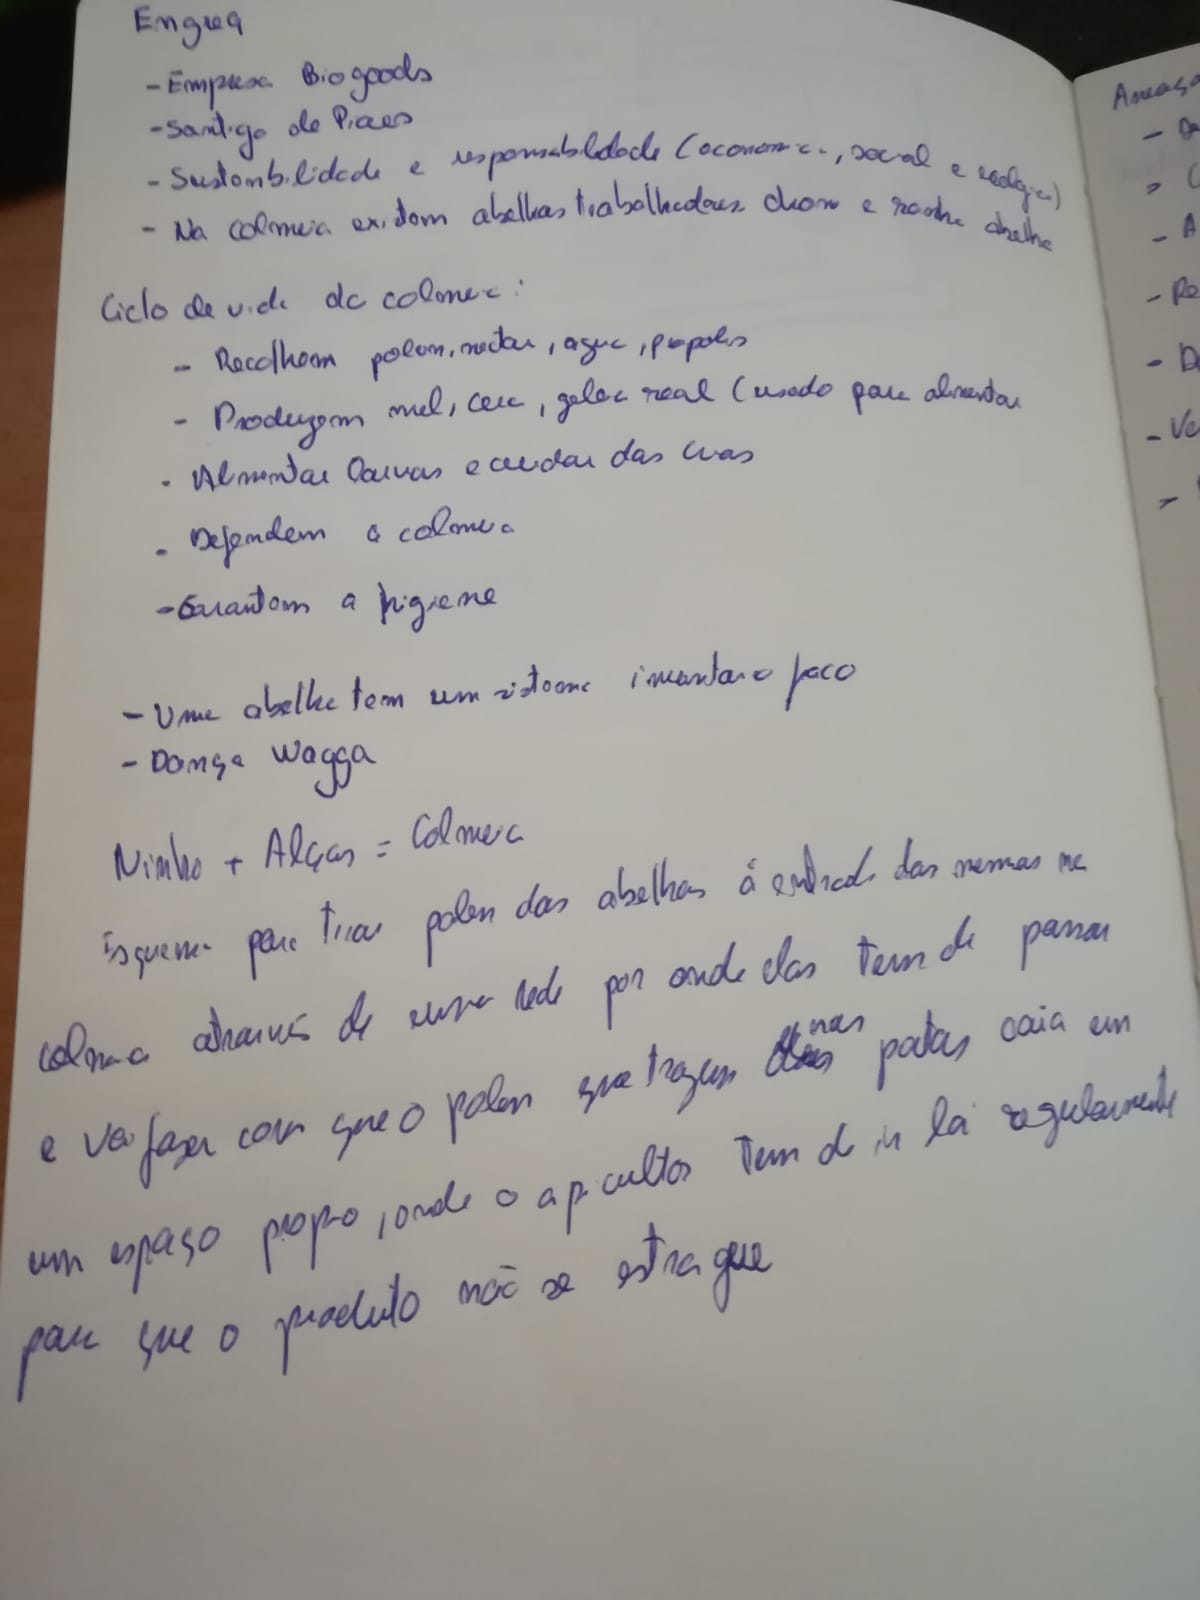 Engrea
- Empresa Biogoods
- Santigo de Piaes
- Sustentabilidade e responsabilidade (economica, social e ecologica)
- Na colmeia existem abelhas trabalhadoras, e rainha abelha
Ciclo de vida da colmeia:
- Recolhem polen, nectar, agua, propolis
- Produzem mel, cera, geleia real (usado para alimentar
- Alimentar larvas e cuidar das crias
- Defendem a colmeia
- Garantem a higiene
- Uma abelha tem um sistema imunitario fraco
- Dança Wagga
Ninho + Alças = Colmeia
Esquema para tirar polen das abelhas á entrada das mesmas na
colmeia através de uma rede por onde elas tem de passar
e vai fazer com que o polen que trazem nas patas caia em
um espaço proprio, onde o apicultor tem de ir lá regularmente
para que o produto não se estrague
Ameaça
- De
- A
- Re
- De
- Ve